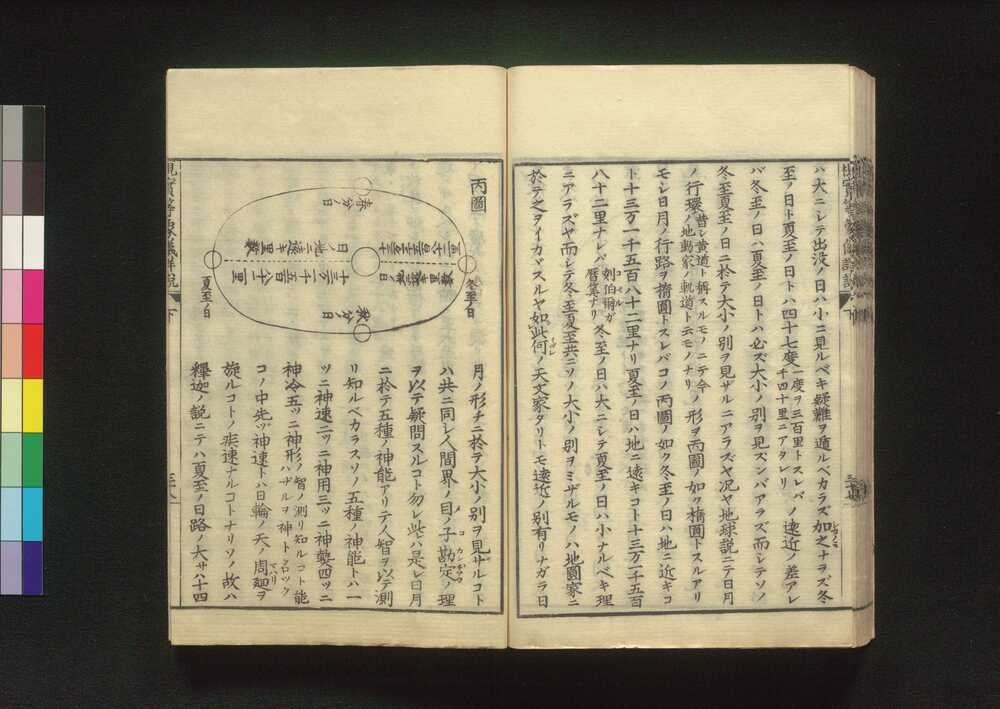 ハ大ニシテ出没ノ日ハ小ニ見ルベキ疑難ヲ遁ルベカラズ加之ナヲズ冬
至ノ日ト夏至ノ日トハ四十七度一度ヲ三百里トスレバ一万四千四十里ニアタレリノ遠近ノ差アレ
バ冬至ノ日ハ夏至ノ日トハ必ズ大小ノ別ヲ見ズンバアラズ而シテソノ
冬至夏至ノ日ニ於テ大小ノ別ヲ見サルニアラズヤ况ヤ地球説ニテ日月
ノ行環ノ地動家ノ軌道ト云モノナリ昔シ黄道ト稱スルモノニテ今ノ形ヲ丙圖ノ如ク橢圓トスルアリ
モシ日月ノ行路ヲ橢圓トスレバコノ丙圖ノ如ク冬至ノ日ハ地ニ近キコ
ト十三万一千五百八十二里ナリ夏至ノ日ハ地ニ遠キコト十三万六千五百
八十二里ナレバ刻伯爾ガ暦算ナリ冬至ノ日ハ大ニシテ夏至ノ日ハ小ナルベキ理
ニアラズヤ而シテ冬至夏至共ニソノ大小ノ別ヲミザルモノハ地圓家ニ
於テ之ヲイカヾスルヤ如此何ノ天文家タリトモ遠近ノ別有リナガラ日
丙圖
冬至ノ日
春分ノ日
秋分ノ日
夏至ノ日
月ノ形チニ於テ大小ノ別ヲ見サルコト
ハ共ニ同シ人間界ノ目ノ子勘定ノ理
ヲ以テ疑問スルコト勿レ此ハ是レ日月
ニ於テ五種ノ神能アリテ人智ヲ以テ測
リ知ルベカラスソノ五種ノ神能トハ一
ツニ神速二ツニ神用三ツニ神變四ツニ
神冷五ツニ神形人ノ智ノ測リ知ルコト能ハザルヲ神トツク
コノ中先ヅ神速トハ日輪ノ天ノ周廻ヲ
旋ルコトノ疾速ナルコトナリソノ故ハ
釋迦ノ説ニテハ夏至ノ日路ノ大サハ十四
視實等象儀詳説
下